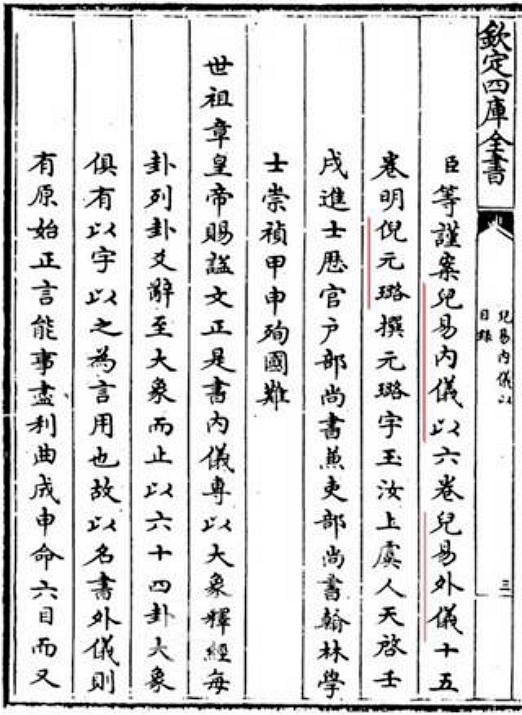 欽定四庫全書
兒易內儀以
目錄
三
臣等謹案兒易內儀以六卷兒易外儀十五
卷明倪元璐撰元璐字玉汝上虞人天啓壬
戌進士歷官戶部尚書兼吏部尚書翰林學
士崇禎甲申殉國難
世祖章皇帝賜諡文正是書內儀專以大象釋經每
卦列卦爻辭至大象而止以六十四卦大象
俱有以字以之為言用也故以名書外儀則
有原始正言能事盡利曲成申命六目而又